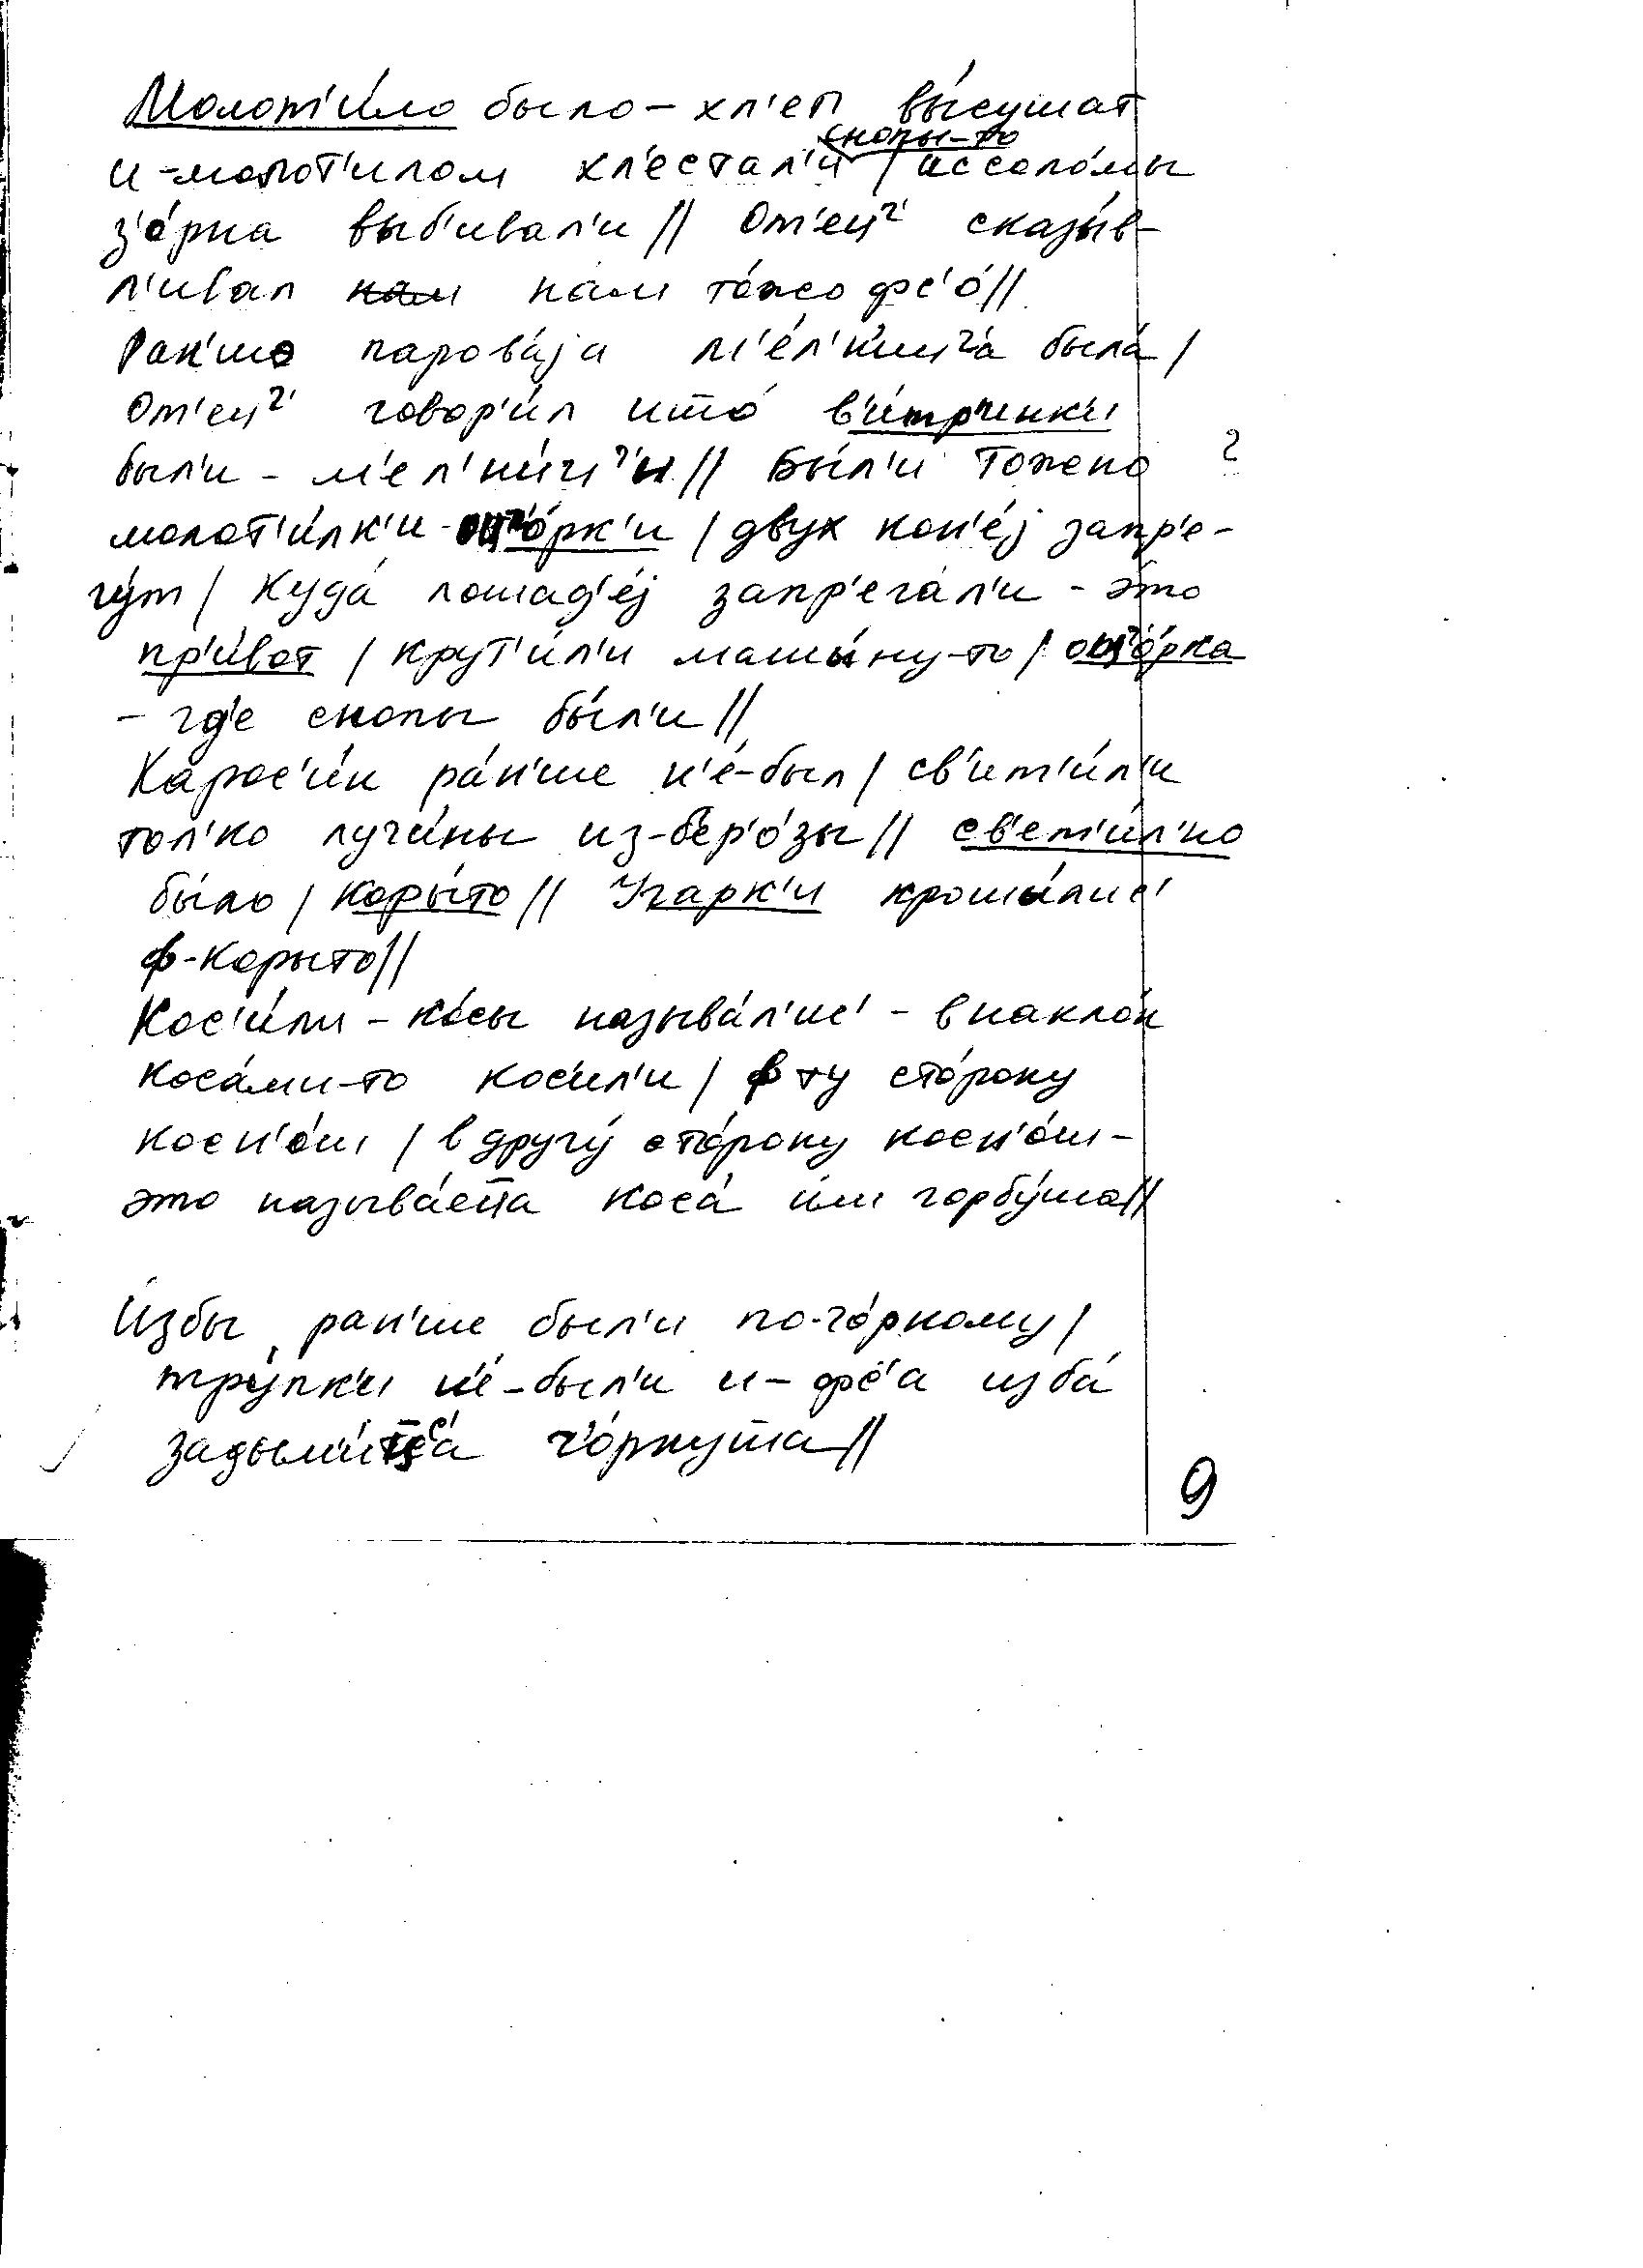 Молот'и́ло было – хл'еп вы́сушат
снопы-то
и-молот'илом хл'естал'и / иссоло́мы
з'о́рна выб'ивал'и // От'ец ч' сказы́в-
л'ивал на́м то́жо фс'о́ //
Ран'шо парова́jа м'е́л'н'иц ч'а была́ /
От'ец ч' говор'и́л што́ в'и́тр'инк'и
был'и – м'ел'н'иц ч'и // Бы́л'и тожено ?
молот'и́лк'и - ощ'о́рк'и / двух кон'е́j запр'е-
гу́т / куда́ лошад'е́j запр'ега́л'и - э́то
пр'и́вот / крут'и́л'и машы́ну-то / ощ'о́рка
– гд'е снопы бы́л'и //
Карос'и́н ра́н'ше н'е́-был / св'ит'и́л'и
тол'ко лучи́ны из-бер'о́зы // св'ет'и́л'но
бы́ло / коры́то // Угарк'и крошы́лис'
ф-корыто //
Кос'и́ли – ко́сы называ́л'ис' – внакло́н
коса́ми-то косил'и / ф ту сто́рону
косн'о́ш / в другу́ сто́рону косн'о́ш –
это называ́ет̅а коса́ и́ли горбу́ша //
И́збы ран'ше был'и по-чо́рному /
тру́пк'и н'е́-был'и и-фс'а изба́
задыми́т̅с'а ч'о́рнут̅а //
9